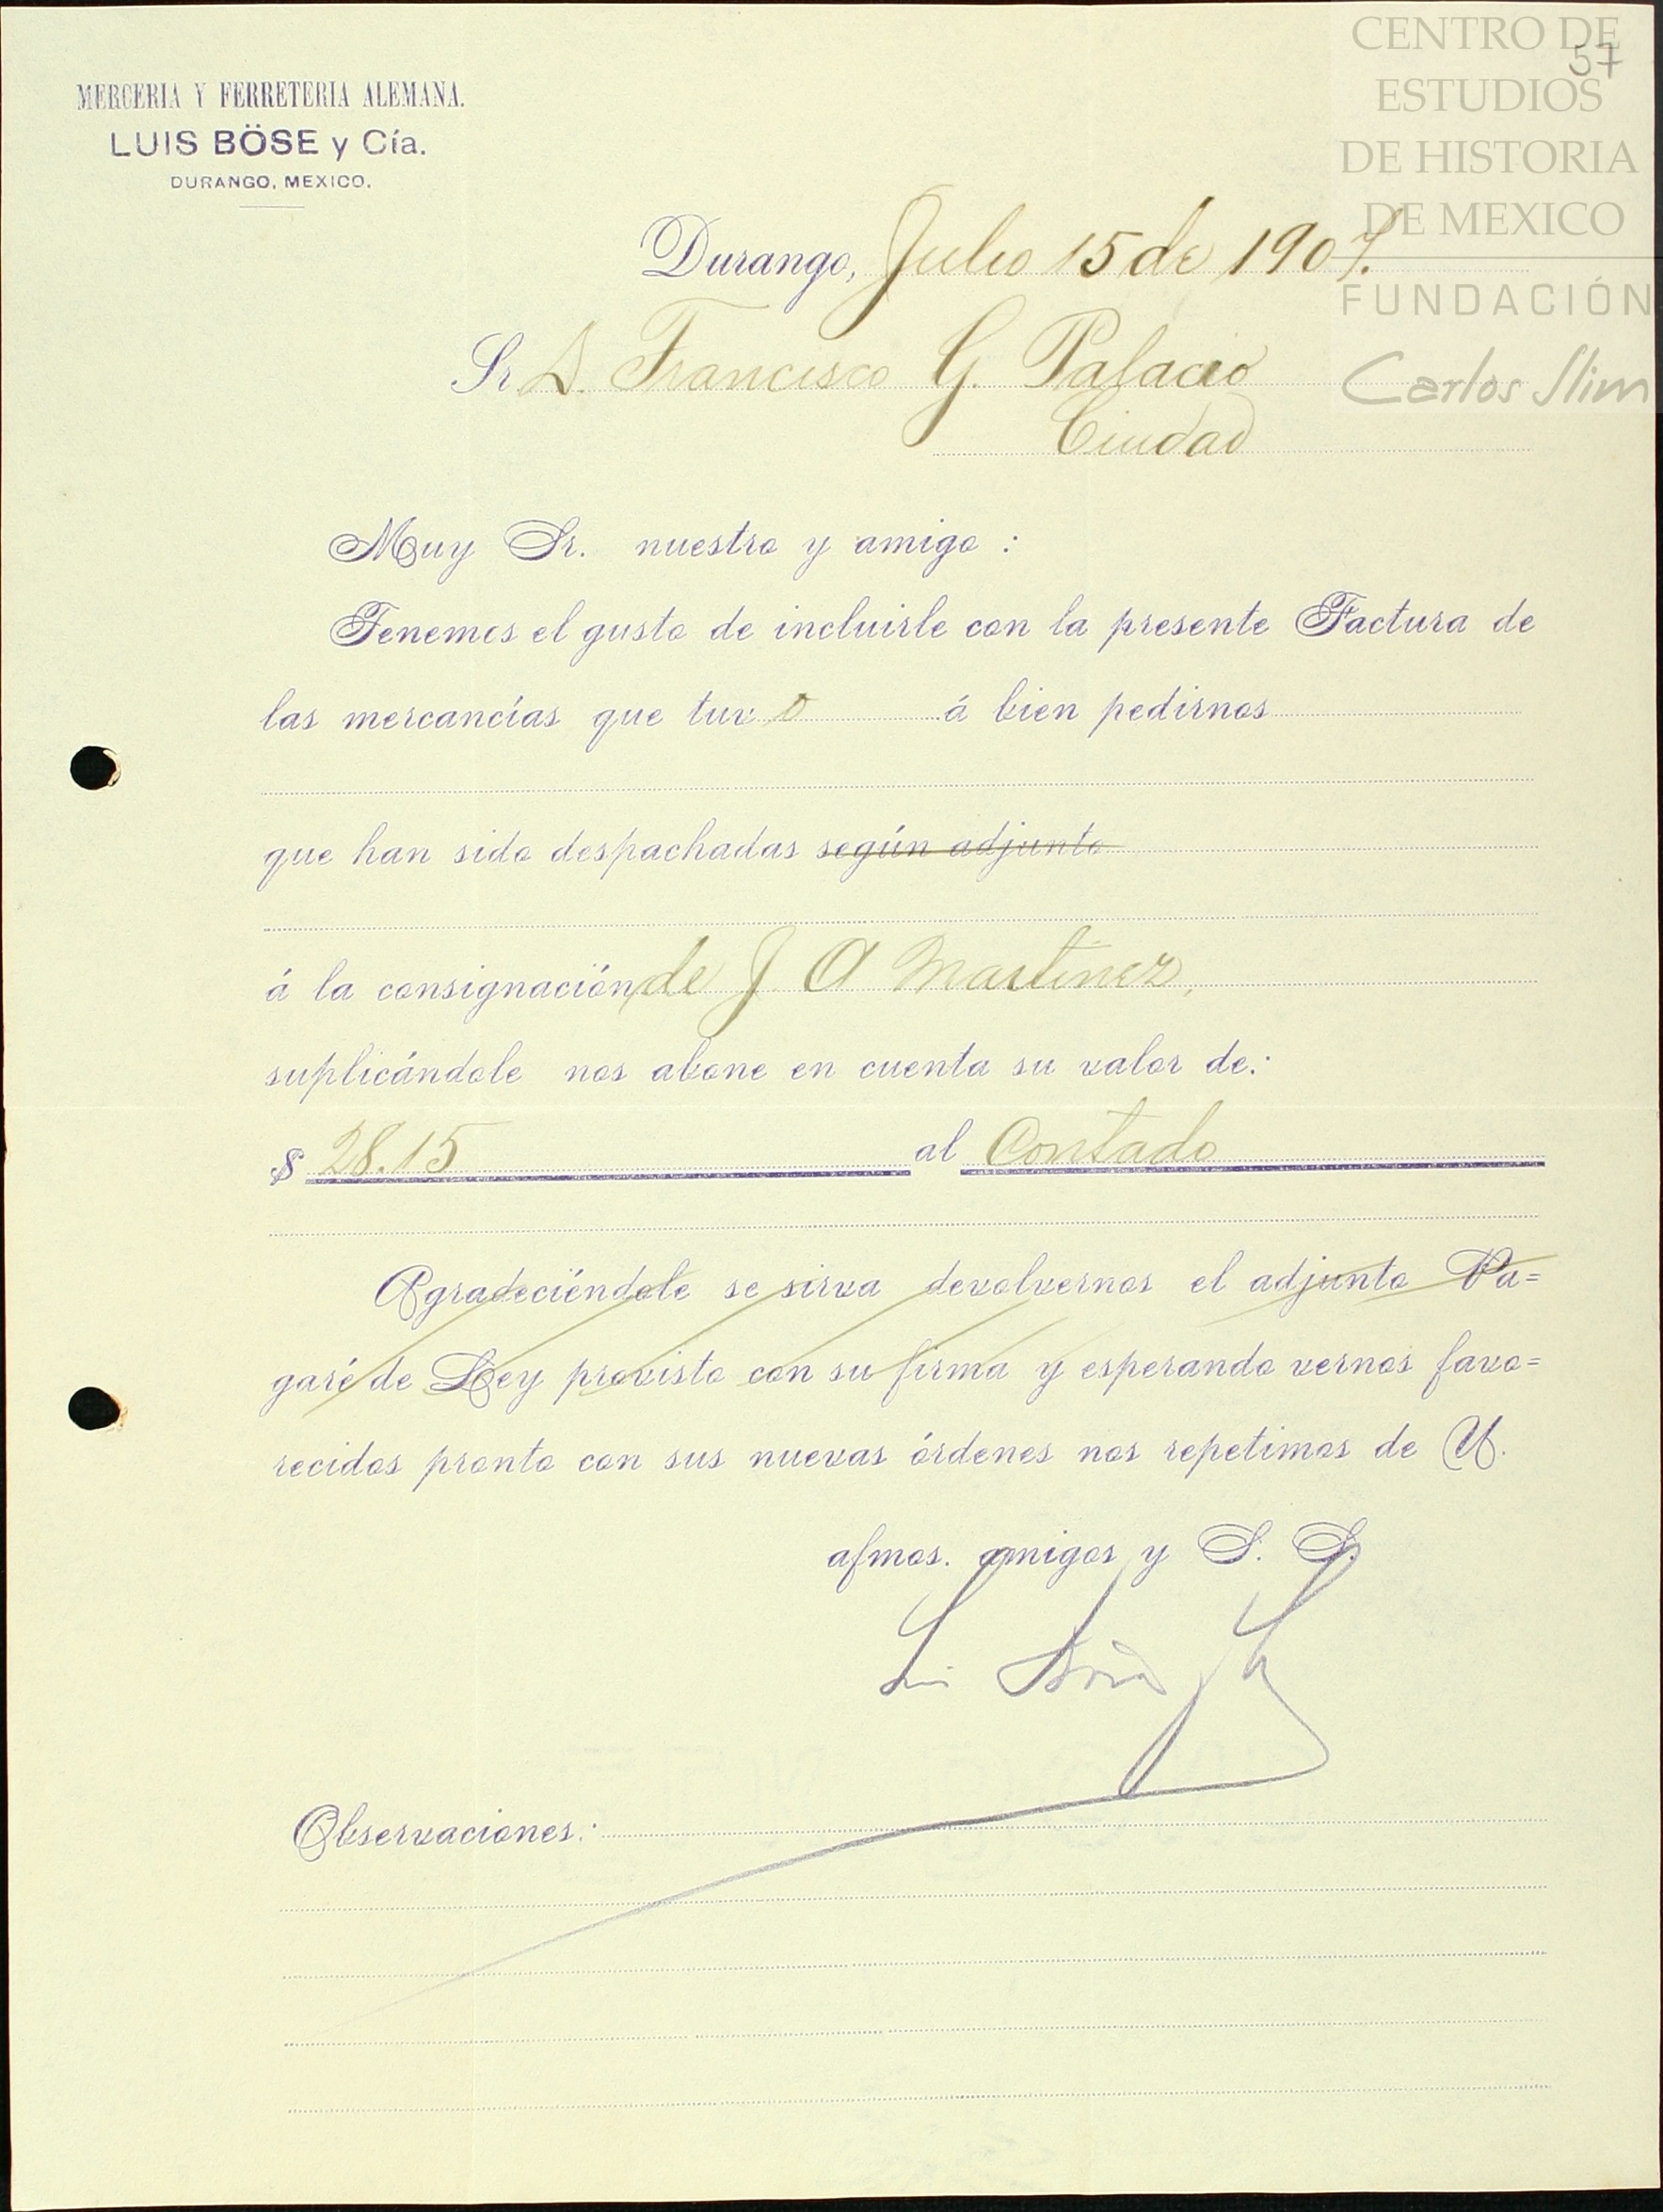 CENTRO DE
ESTUDIOS
DE HISTORIA
DE MEXICO
FUNDACIÓN
Carlos Slim
57
MERCERIA Y FERRETERIA ALEMANA.
LUIS BÖSE y Cía.
DURANGO, MEXICO.
Durango, Julio 15 de 1907.
Sr D. Francisco G. Palacio
Ciudad
Muy Sr. nuestro y amigo :
Tenemos el gusto de incluirle con la presente Factura de
las mercancías que tuvo á bien pedirnos
que han sido despachadas según adjunto
á la consignación de J. A Martinez,
suplicándole nos abone en cuenta su valor de:
$ 28.15 al Contado
Agradeciéndole se sirva devolvernos el adjunto Pa=
garé de Ley provisto con su firma y esperando vernos favo=
recidos pronto con sus nuevas órdenes nos repetimos de U.
afmos. amigos y S. S.
Observaciones: